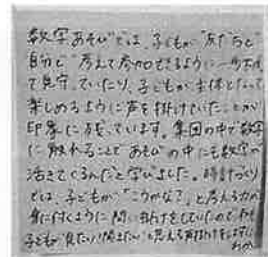 数字あそびでは、子どもが"友だちと
自分で考えて参加できるように一歩引い
て見守っていたり、子どもが主体となって
楽しめるように声を掛けていたことが
印象に残っています。集団の中で数字
に触れることであそびの中にも数字が
活きてくるんだと学びました。時計づくり
では、子どもが「こうかな？」と考える力が
身に付くように問い掛けをしていたので、
子どもが"見たい・聞きたい"と思える声掛けを